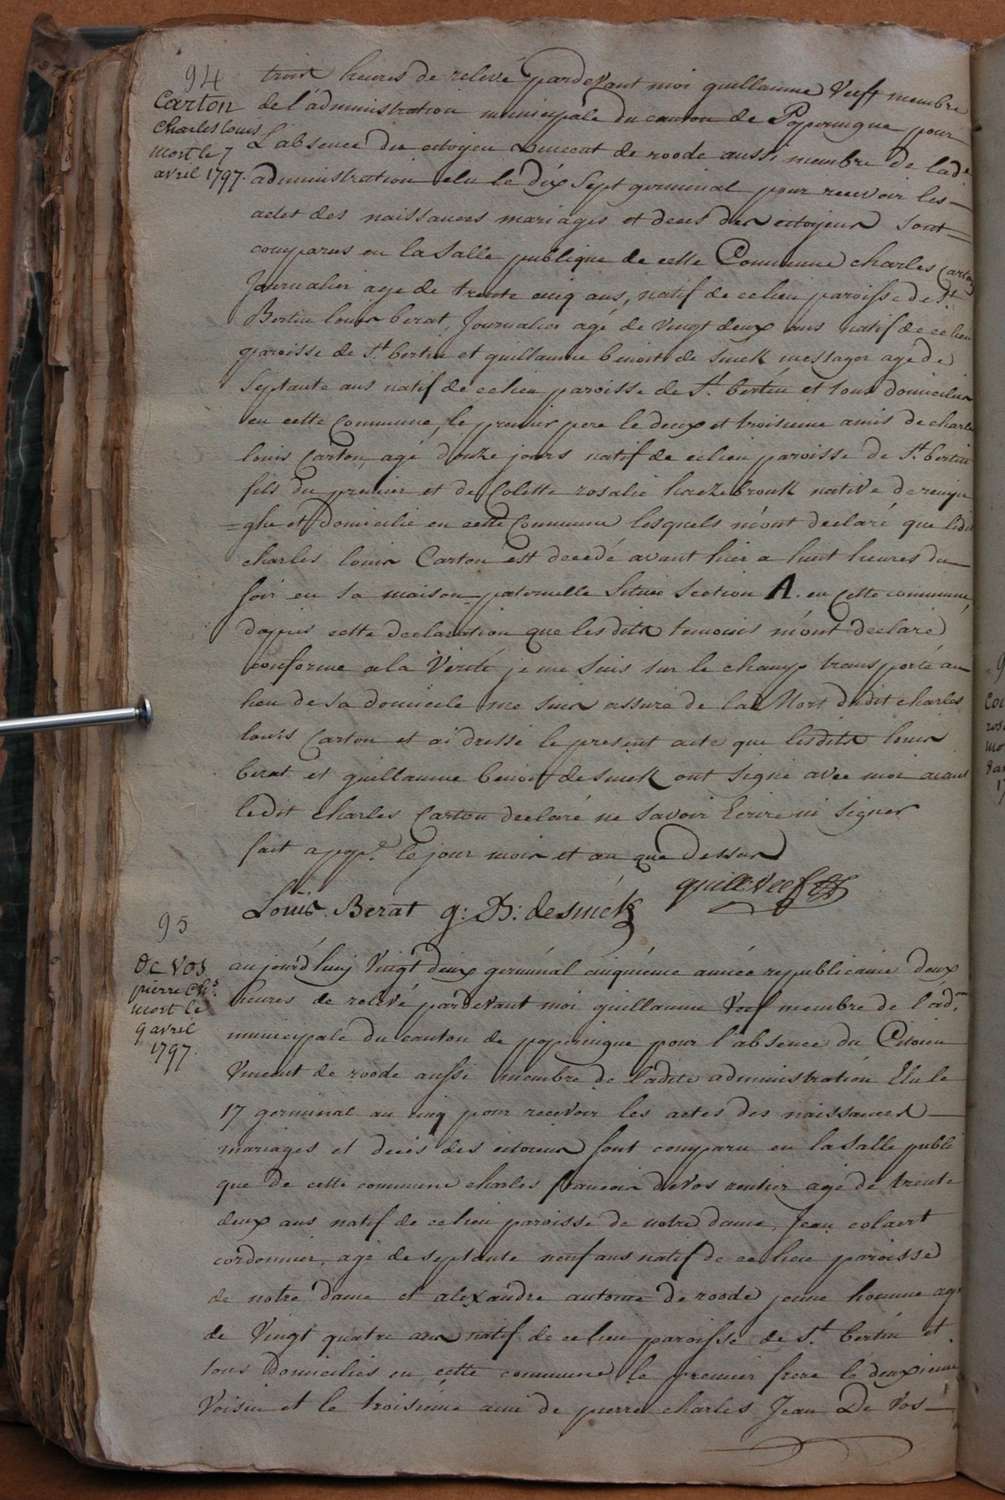 94
Carton
Charles Louis
mort le 7
avril 1797.
trois heures de relevé pardevant moi guillaume Veeff membre
de l'administration municipale du canton de Poperingue pour
L'absence du citoyen vincent de roode aussi membre de lad.e
administration elu le dix Sept germinal pour recevoir les
actes des naissances mariages et deces des citoyens Sont
comparus en la Salle publique de cette Commune charles Carton
Journalier age de trente cinq ans, natif de ce lieu paroisse de St
Bertin louis berat, Journalier agé de Vingt deux ans natif de ce lieu
paroisse de St bertin et guillaume benoit de Smek messager age de
Septante ans natif de ce lieu paroisse de St. bertin et tous domicilies
en cette Commune, le premier pere le deux et troisieme amis de charles
louis Carton, agé douze jours natif de ce lieu paroisse de St bertin
fils du premier et de Colette rosalie hazebrouk native de renin
=ghe et domicilie en cette Commune lesquels m'ont declaré que ledit
charles louis Carton est decedé avant hier a huit heures du
soir en sa maison paternelle Située Section A. en cette commune,
d'appres cette declaration que lesdits temoins m'ont declaré
conforme a la Verité je me suis sur le champ transporté au
lieu de sa domicile me suis assuré de la Mort dudit charles
louis Carton et ai dressé le present acte que lesdits louis
berat et guillaume benoit de Smek ont signé avec moi aiant
ledit Charles Carton declaré ne savoir Ecrire ni signer
fait a pop.e le jour mois et an que dessus
guill. Veeff
Louis Berat g: B: desmek
95
De Vos
pierre Ch.s
mort le
9 avril
1797.
aujourd'huy Vingt deux germinal cinquieme année republicaine deux
heures de relevé pardevant moi guillaume Veef membre de l'ad.on
municipale du canton de poperingue pour l'absence du Citoien
Vincent de roode aussi membre de Ladite administration Elu le
17 germinal an cinq pour recevoir les actes des naissances
mariages et decès des citoiens sont comparu en la salle publi
que de cette commune charles francois de Vos rentier agé de trente
deux ans natif de ce lieu paroisse de notre dame, Jean colaert
cordonnier, agé de septante neuf ans natif de ce lieu paroisse
de notre dame et alexandre antoine de roode jeune homme agé
de Vingt quatre ans natif de ce lieu paroisse de St bertin et
tous domiciliés en cette commune le premier frere le deuxieme
Voisin et le troisieme ami de pierre charles Jean De Vos